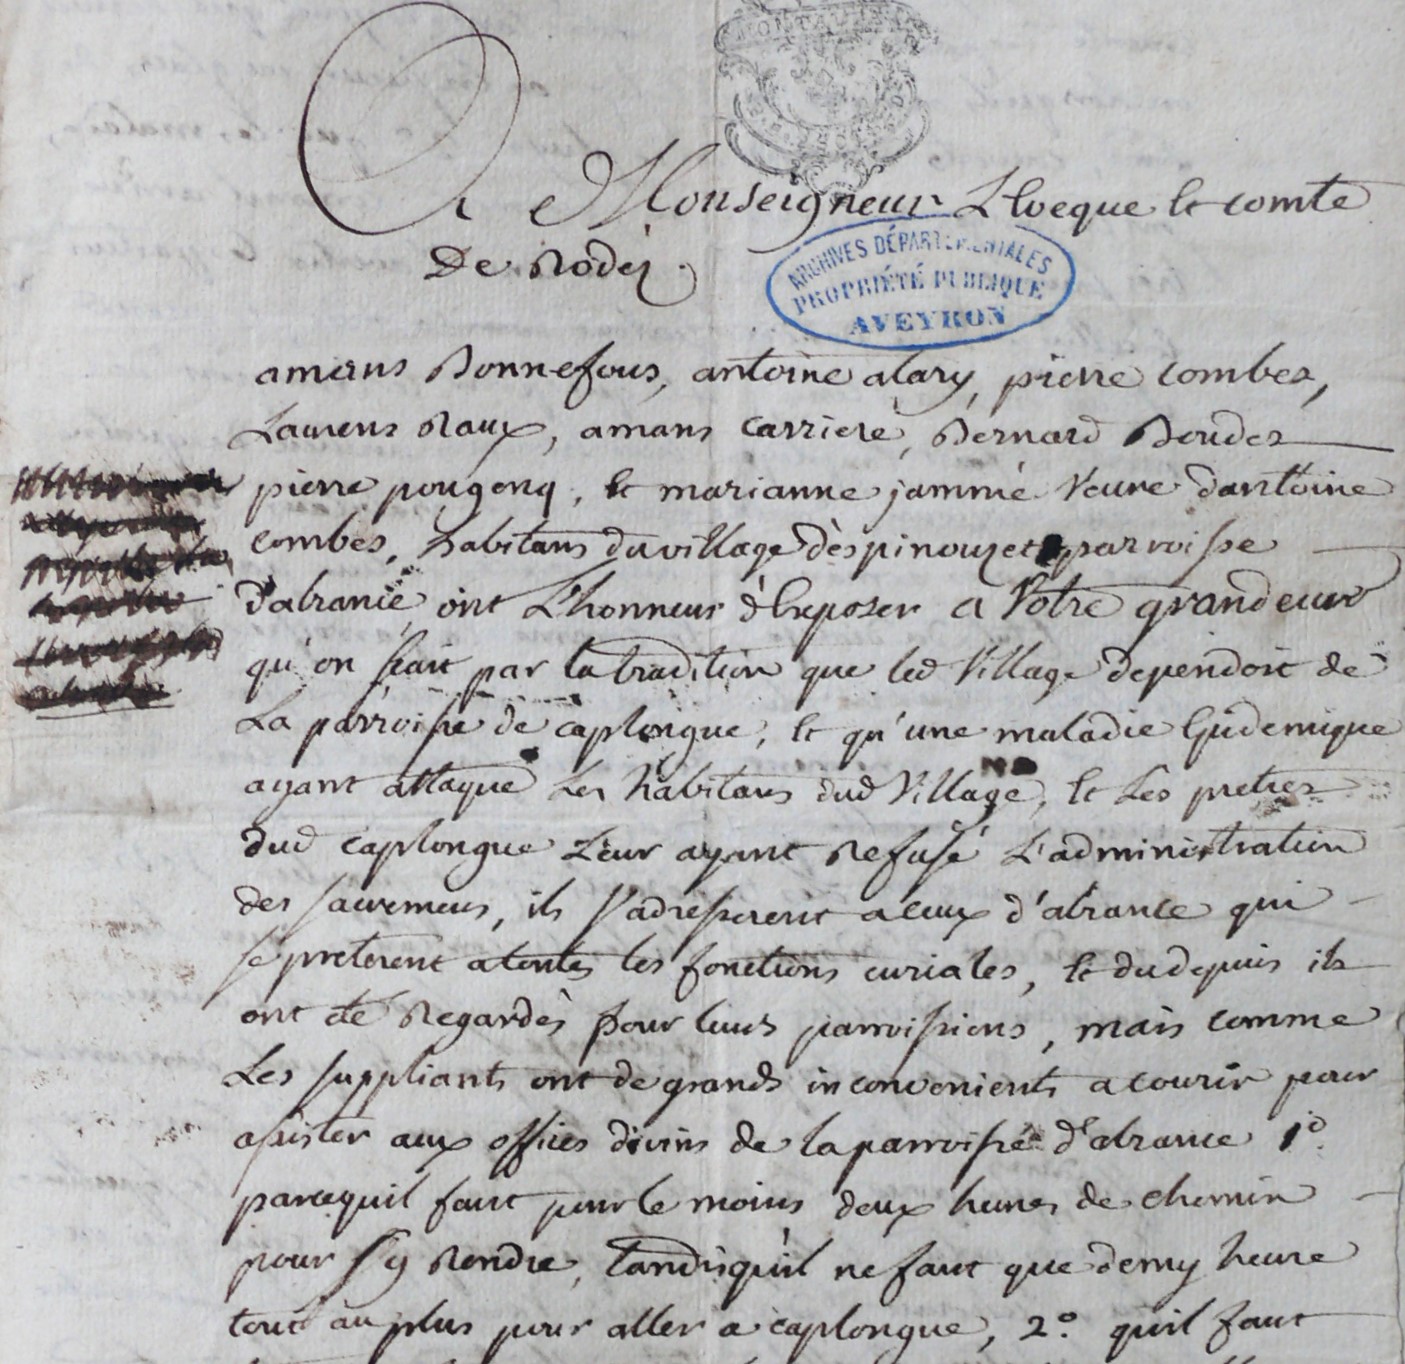 MONTAUBAN
A Monseigneur L'Eveque et comte
De Rodéz
ARCHIVES DÉPARTEMENTALES
PROPRIÉTÉ PUBLIQUE
AVEYRON
amans Bonnefous, antoine alary, pierre combes,
Laurens Raux, amans carriere, Bernard Boudes
pierre pougenq, et marianne jammé veuve dantoine
combes, habitans du village dèspinouzet parroisse
d'abrancé, ont L'honneur d'Exposer a Votre grandeur
qu'on scait par la tradition que led village dependoit de
La parroisse de caplongue, et qu'une maladie Epidemique
ayant attaqué Les habitans dud village, et Les pretres
dud caplongue Leur ayant Refusé L'administration
des sacremens, ils s'adresserent a ceux d'abrance qui
se preterent a toutes les fonctions curiales, et du depuis ils
ont eté Regardès pour leurs parroissiens, mais comme
Les suppliants ont de grands inconvenients a courir pour
assister aux offices divins de la parroisse d'abrance 1º
parcequil faut pour le moins deux heures de chemin
pour s'y Rendre, tandisqu'il ne faut que demy heure
tout au plus pour aller a caplongue, 2º. qu'il faut